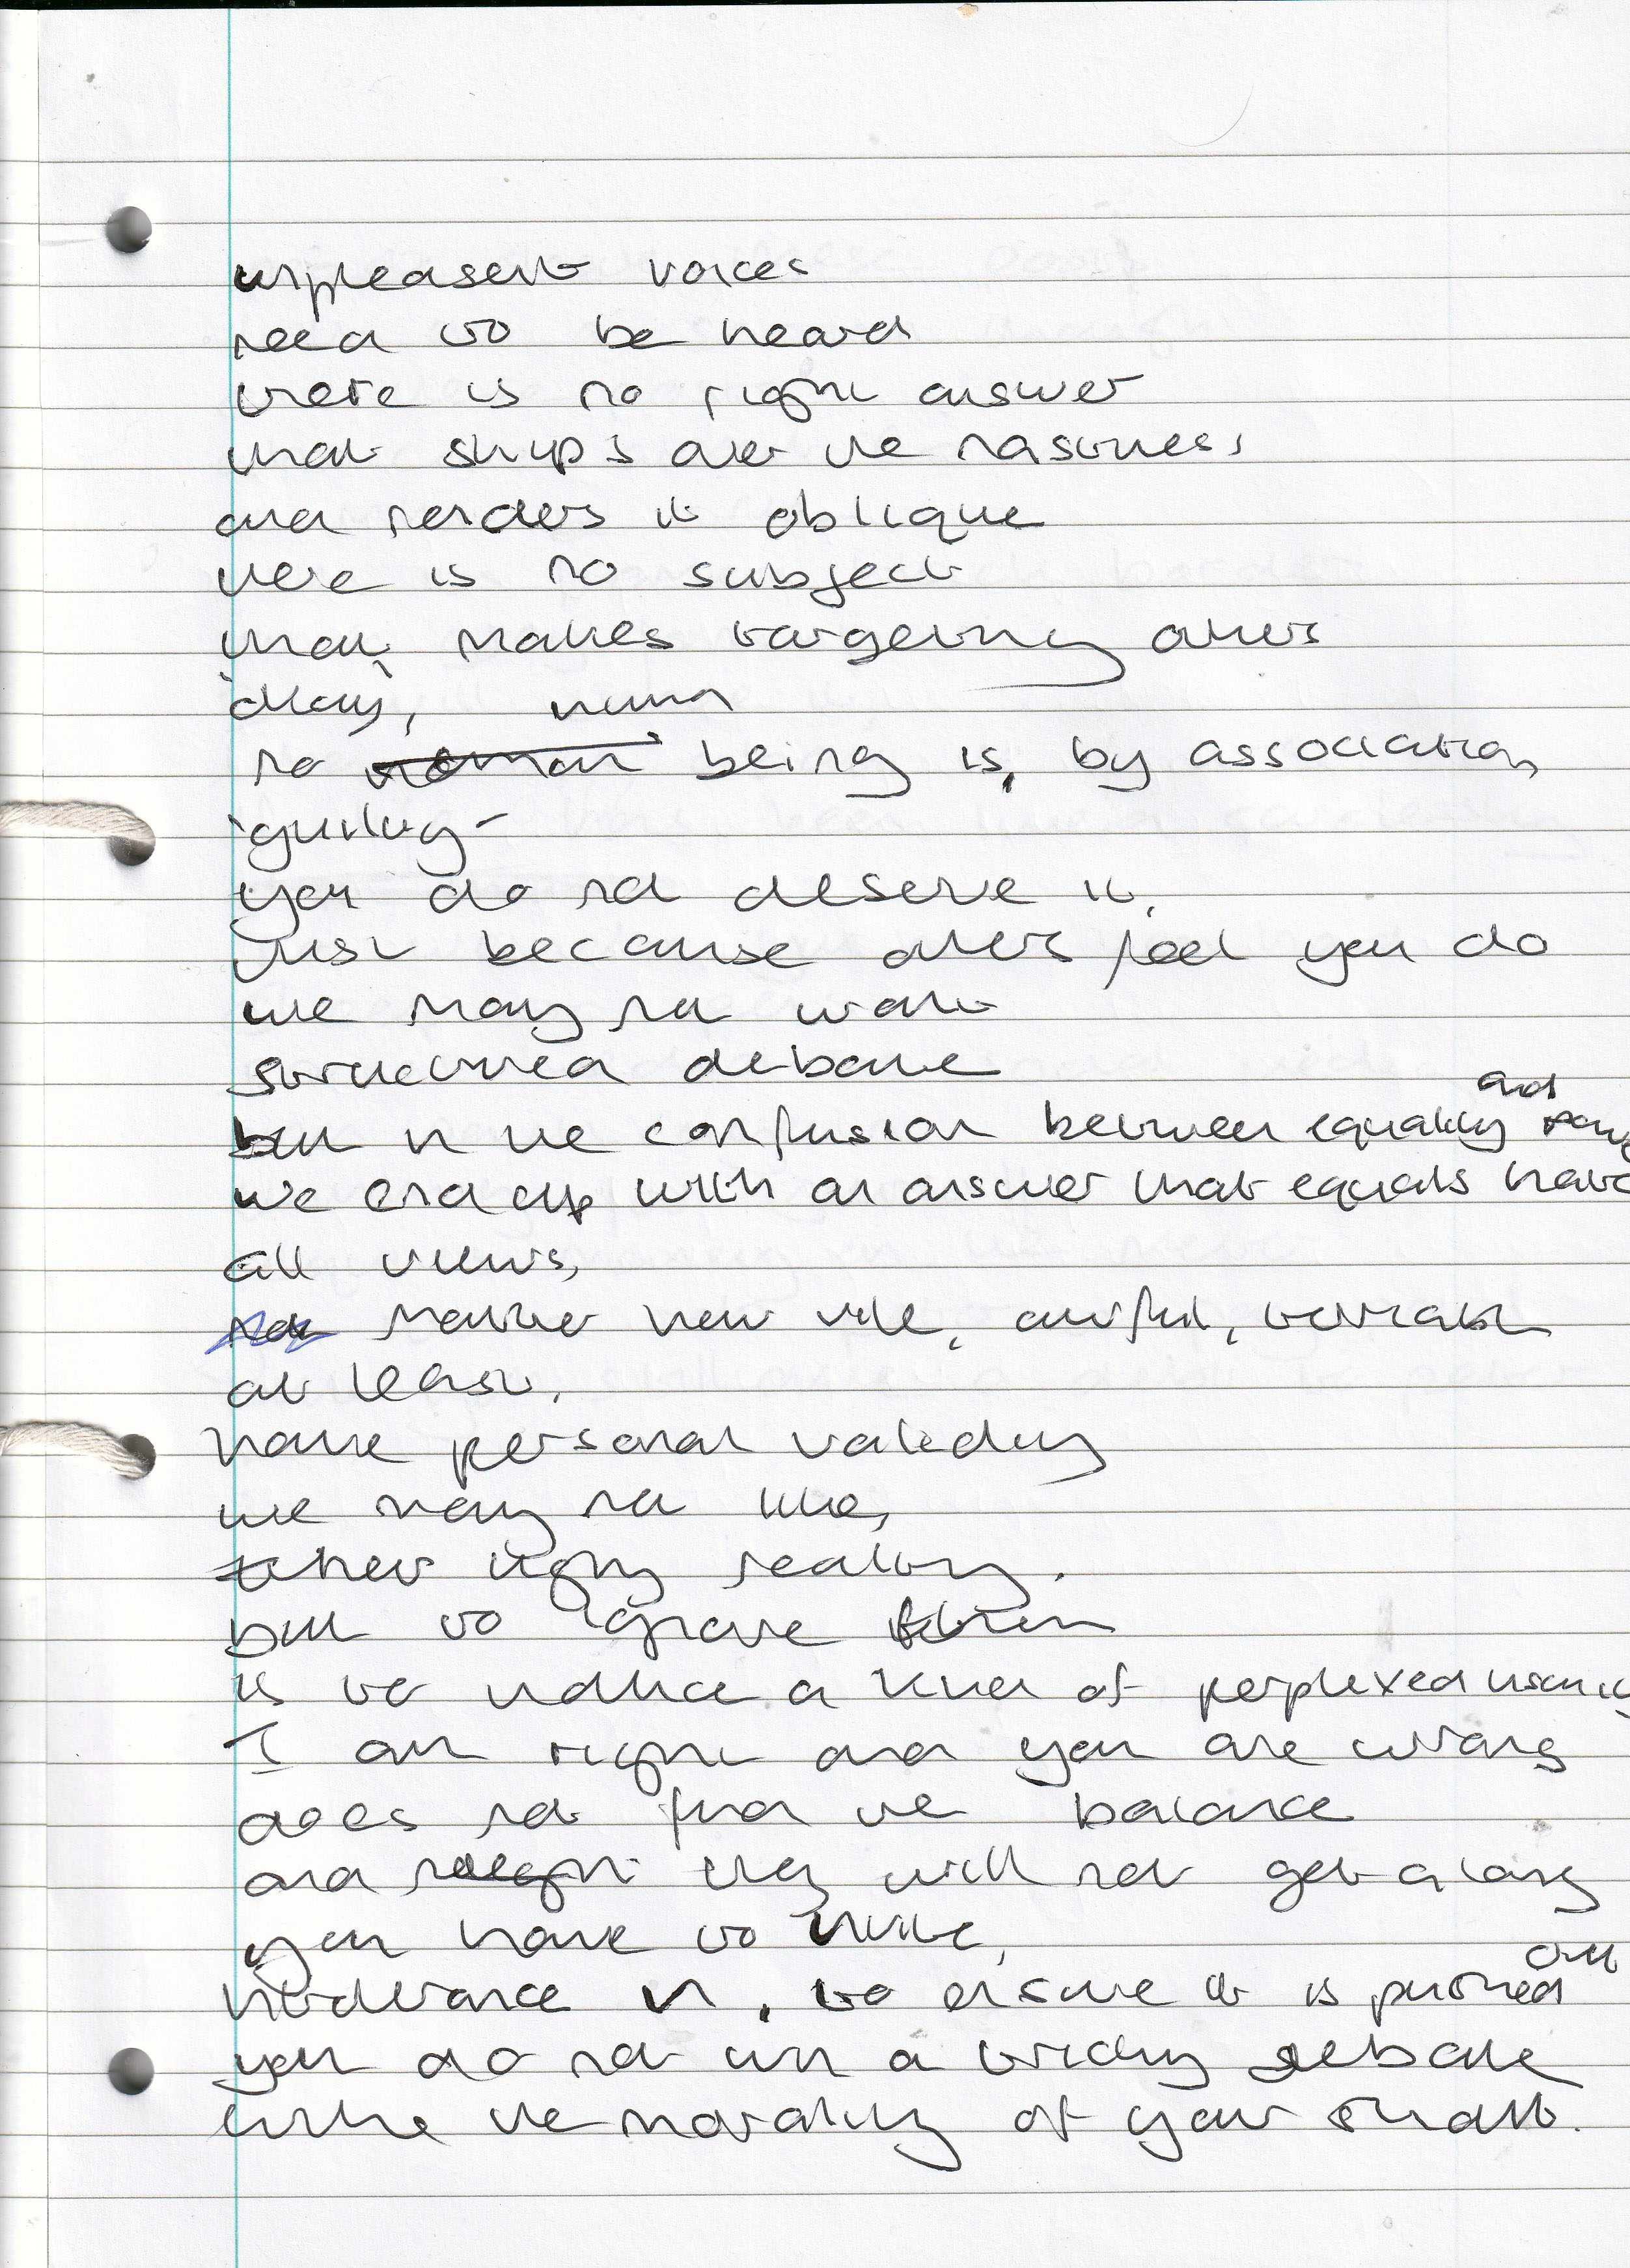 unpleasent voices
need to be heard
there is no right answer
that skips over the nastiness,
and renders it oblique
there is no subject
that makes targeting others
'okay', human
no woman being is, by association,
'guilty'
you do not deserve it,
just because others feel you do
we may not want
structured debate
and
but in the confusion between equality
we end up with an answer that equals have
all views,
matter how vile, awful, terrible
at least,
have personal validity
we may not like,
their ugly reality.
but to ignore them
is to induce a kind of perplexed
I am right and you are wrong
does not find the balance
and they will not get along
you have to invite,
hinderance in, to ensure it is pushed
out
you do not win a tricky debate
with the morality of your